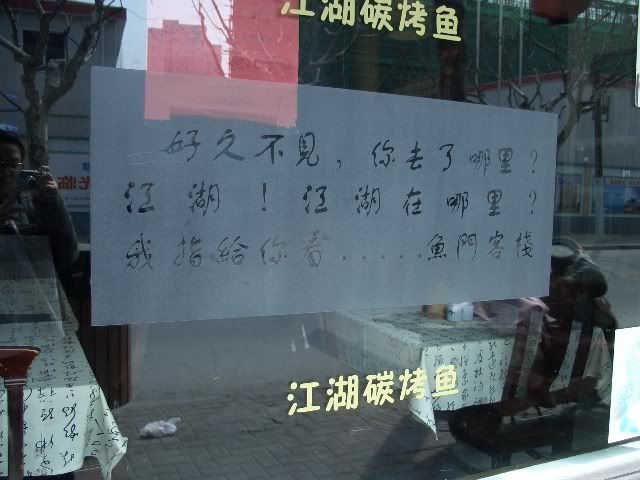 江湖碳烤鱼
好久不見，你去了哪里？
江湖！江湖在哪里？
我指給你看.....魚門客棧
江湖碳烤鱼